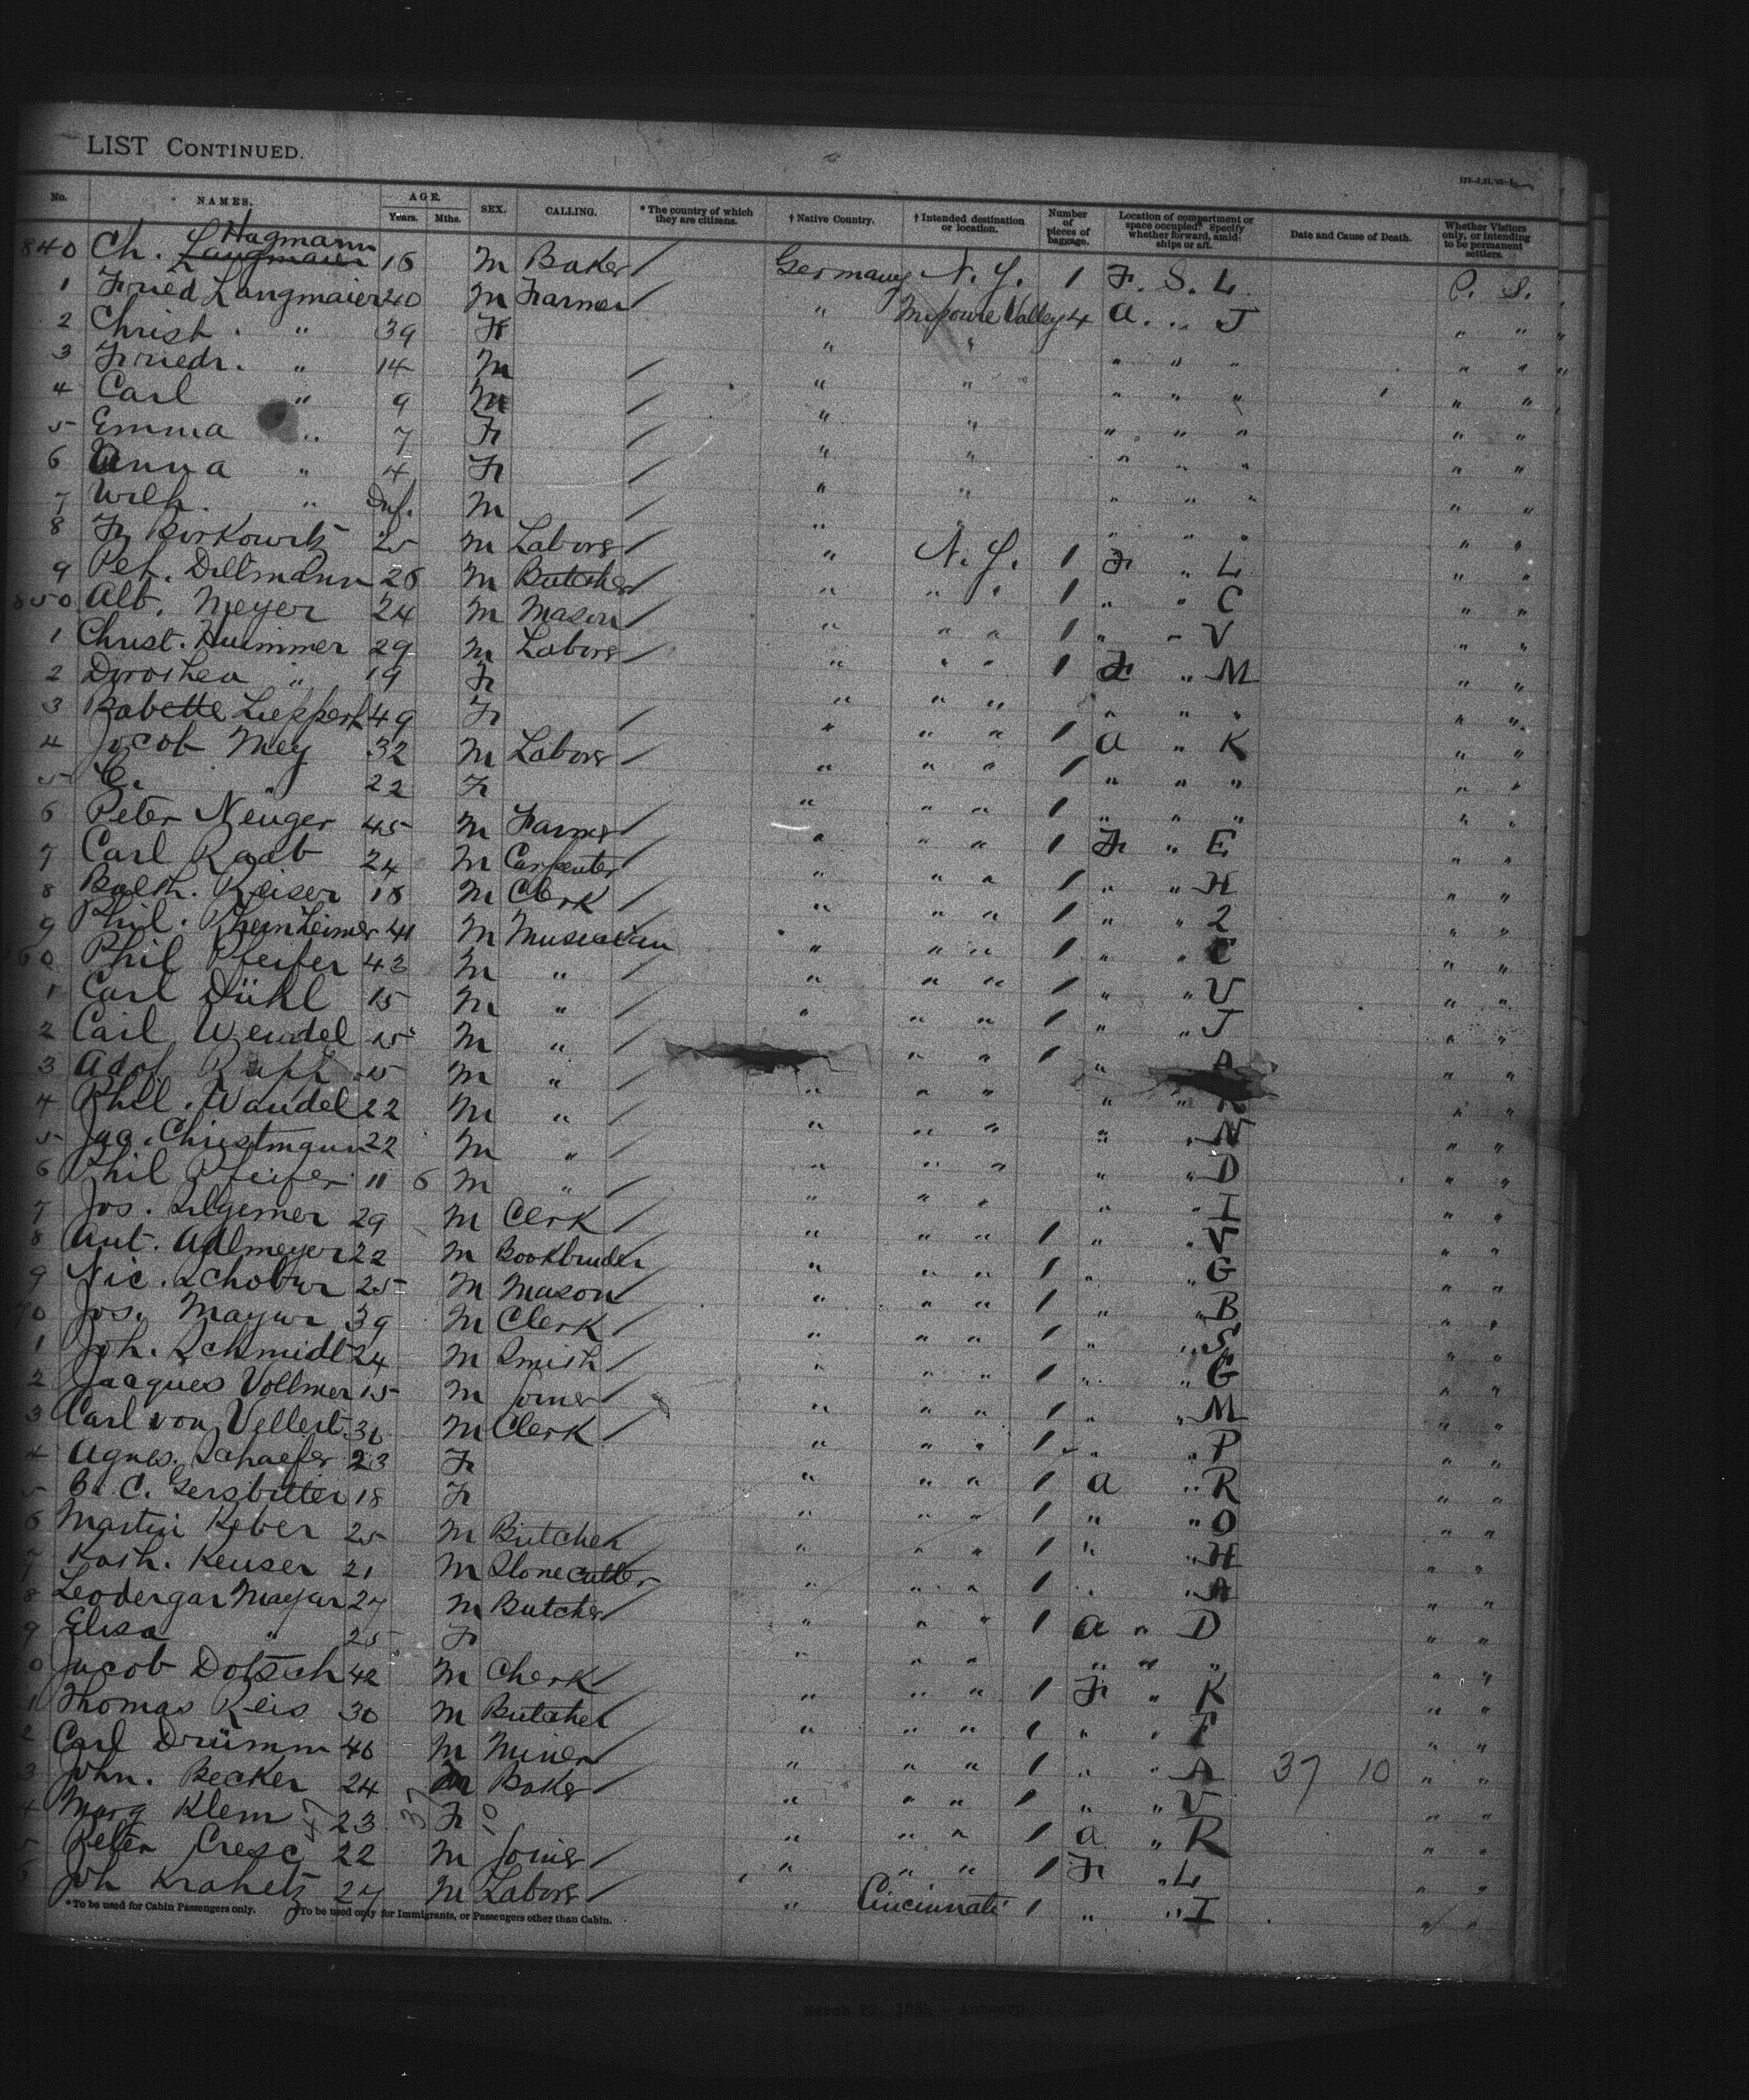 LIST CONTINUED.
No. NAMES. AGE. Years. Mths. SEX. CALLING. * The country of which they are citizens. † Native Country. † Intended destination or location. Number of pieces of baggage. Location of compartment or space occupied. Specify whether forward, amidships or aft. Date and Cause of Death. Whether Visitors only, or intending to be permanent settlers.
Hagmann
840 Ch. Langmaier 16 M Baker / Germany N. Y. 1 F. S. L. P. S.
1 Fried Langmaier 40 M Farmer / " Valley 4 a. " J " "
2 Christ. " 39 F " " " " " " "
3 Friedr. " 14 M / " " " " " " "
4 Carl " 9 M / " " " " " " "
5 Emma " 7 F / " " " " " " "
6 Anna " 4 F / " " " " " " "
7 Wilh. " Inf. M / " " " " " " "
8 Fr. Birkowitz 25 M Labors / " N. Y. 1 F " L " "
9 Pet. Dillmann 26 M Butcher / " " " 1 " " C " "
850 Alb. Meyer 24 M Mason / " " " 1 " " V " "
1 Christ. Hummer 29 M Labors / " " " 1 F " M " "
2 Dorothea " 19 F " " " " " " " "
3 Babette Lieppert 49 F / " " " 1 a " K " "
4 Jacob Mey 32 M Labors / " " " 1 " " " " "
5 C. " 22 F " " " 1 " " " " "
6 Peter Neuger 45 M Farmer / " " " 1 F " E " "
7 Carl Raab 24 M Carpenter / " " " 1 " " H " "
8 Balth. Keiser 18 M Clerk / " " " 1 " " 2 " "
9 Phil. Rheinheimer 41 M Musician " " " 1 " " C " "
60 Phil Pfeifer 43 M " / " " " 1 " " V " "
1 Carl Dühl 15 M " / " " " 1 " " J " "
2 Carl Wendel 15 M " / " " 1 " A " "
3 Adof 15 M " / " " " " " " "
4 Phil. Wandel 22 M " / " " " " " N " "
5 Jac. Christmann 22 M " / " " " " " D " "
6 Phil Pfeifer 11 6 M " / " " " " " I " "
7 Jos. Ilgemer 29 M Clerk / " " " 1 " " V " "
8 Ant. Adlmeyer 22 M Bookbinder " " " 1 " " G " "
9 Nic. Schober 25 M Mason / " " " 1 " " B " "
70 Jos. Mayer 39 M Clerk / " " " 1 " " S " "
1 Joh. Schmidt 24 M Smith / " " " 1 " " G " "
2 Jacques Vollmer 15 M Joiner / " " " 1 " " M " "
3 Carl von Vellert M Clerk / " " " 1 " " P " "
4 Agnes. Schaefer 23 F " " " 1 a " R " "
5 B. C. Gersbitter 18 F " " " 1 " " O " "
6 Martin Keber 25 M Butcher " " " 1 " " H " "
7 Kath. Keuser 21 M Stonecutter " " " 1 " " A " "
8 Leodergar Mayer 27 M Butcher / " " " 1 a " D " "
9 Elisa " 25 F " " " " " " " "
0 Jacob Dotsch 42 M Cherk / " " " 1 F " K " "
1 Thomas Reis 30 M Butcher " " " 1 " " F " "
2 Carl Drümm 46 M Miner / " " " 1 " " A 37 10 " "
3 John. Becker 24 M Baker / " " " 1 " " V " "
4 Marg Klem 23 37 F " " " 1 a " R " "
5 Peter Cresc 22 M Joiner / " " " 1 F " L " "
6 Joh Krahetz 27 M Labors / " Cincinnati 1 " " I " "
* To be used for Cabin Passengers only. † To be used only for Immigrants, or Passengers other than Cabin.